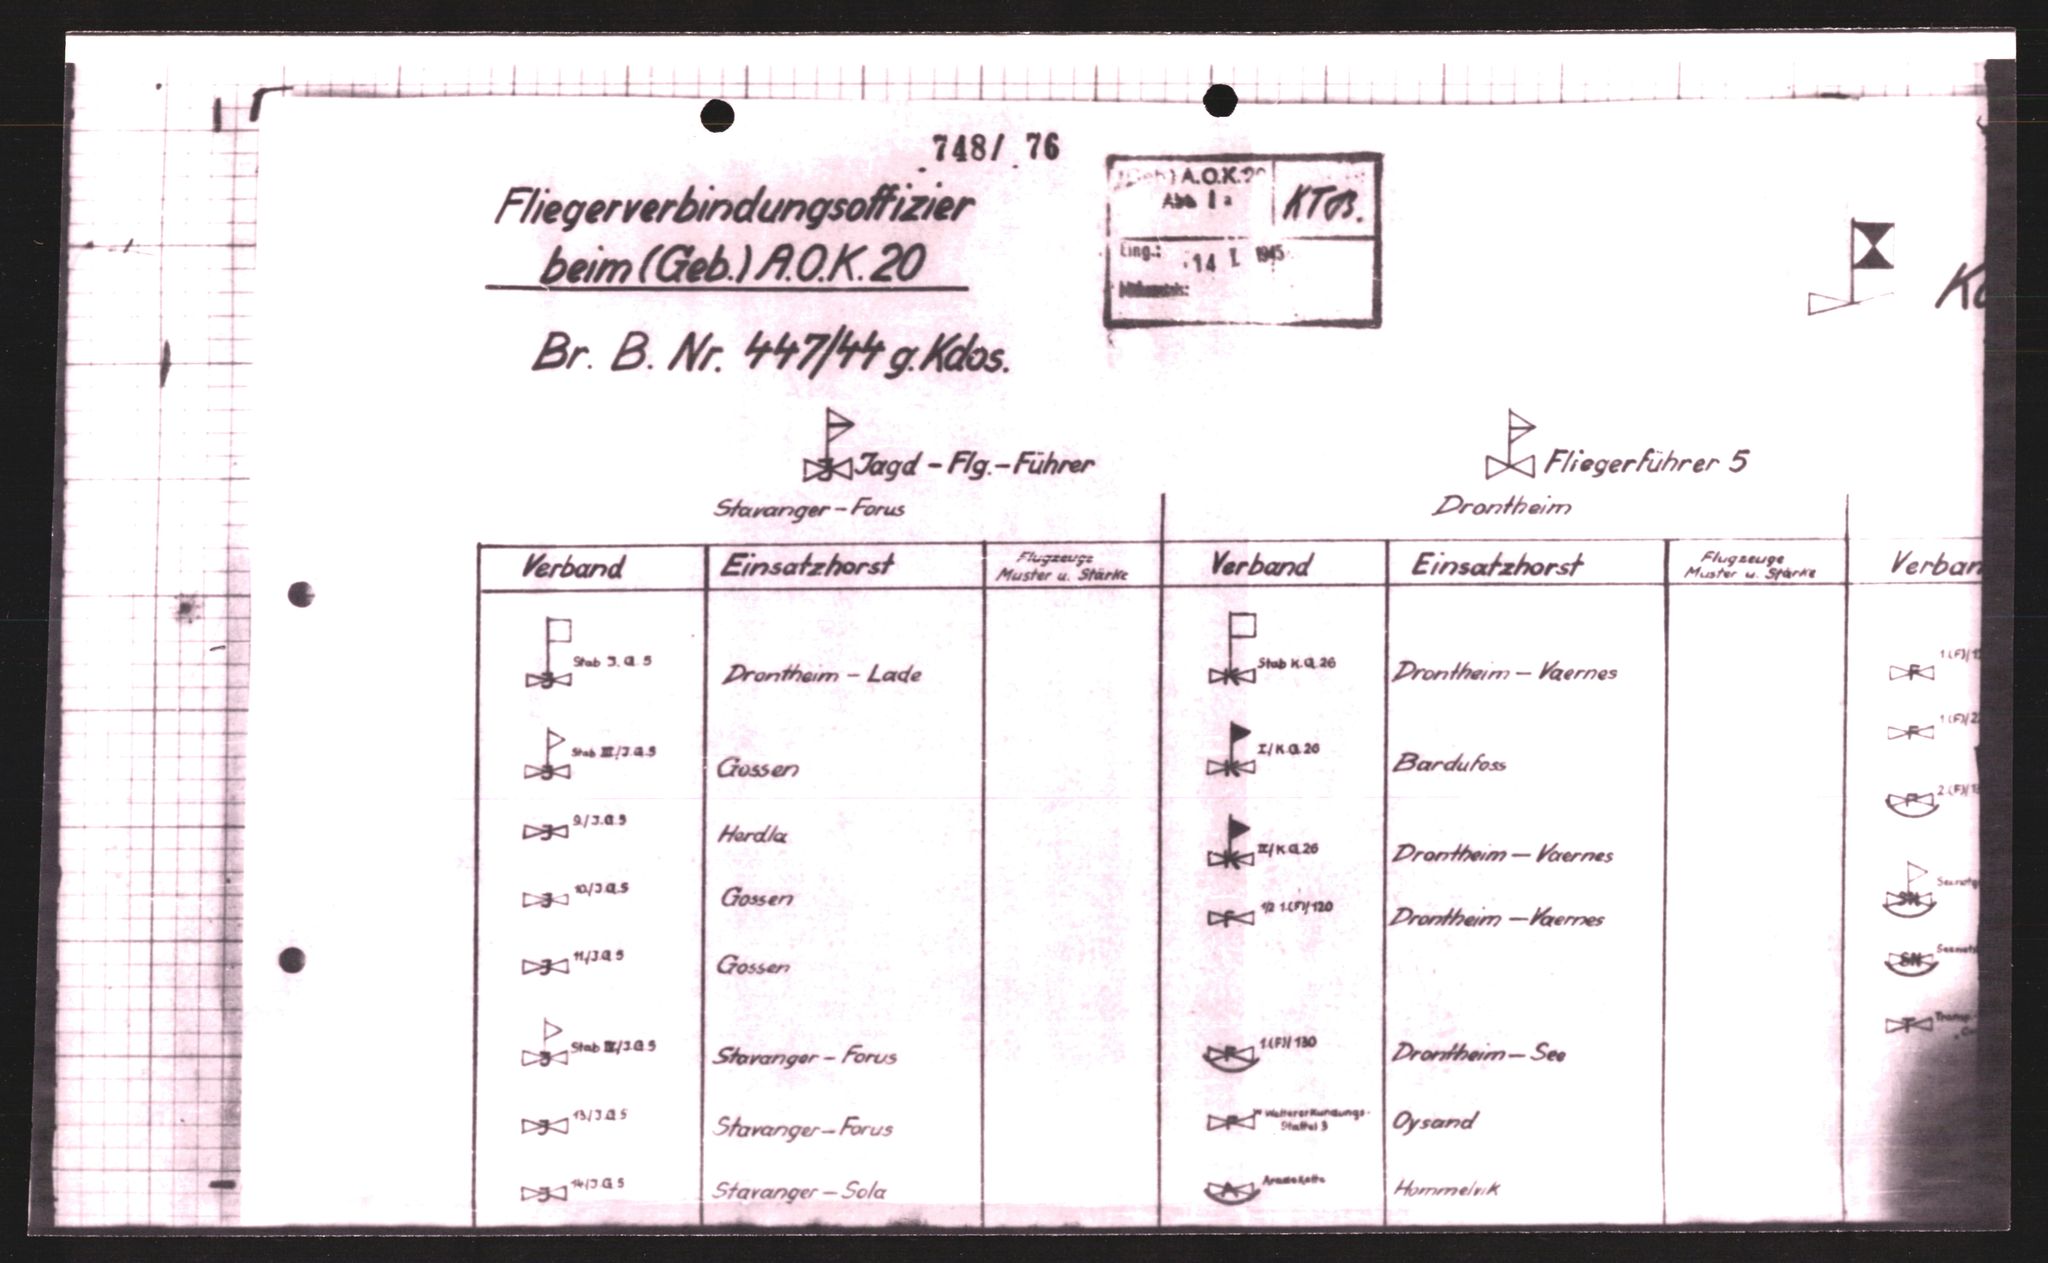 748/ 76
Fliegerverbindungsoffizier
beim (Geb.) A.O.K. 20
Br. B. Nr. 447/44 g.Kdos.
(Geb.) A.O.K. 20
Abt. Ia
KTB.
Eing.: 14 I. 1945
Jagd – Flg. – Führer
Stavanger – Forus
Verband Einsatzhorst Flugzeuge
Muster u. Stärke
Stab J.G.5 Drontheim – Lade
Stab III/J.G.5 Gossen
9./J.G.5 Herdla
10/J.G.5 Gossen
11/J.G.5 Gossen
Stab IV/J.G.5 Stavanger – Forus
13/J.G.5 Stavanger – Forus
14/J.G.5 Stavanger – Sola
Fliegerführer 5
Drontheim
Verband Einsatzhorst Flugzeuge
Muster u. Stärke
Stab K.G.26 Drontheim – Vaernes
I/K.G.26 Bardufoss
II/K.G.26 Drontheim – Vaernes
1/2 1.(F)/120 Drontheim – Vaernes
1.(F)/130 Drontheim – See
Wettererkundungs-
Staffel 3 Oysand
Hommelvik
Verban